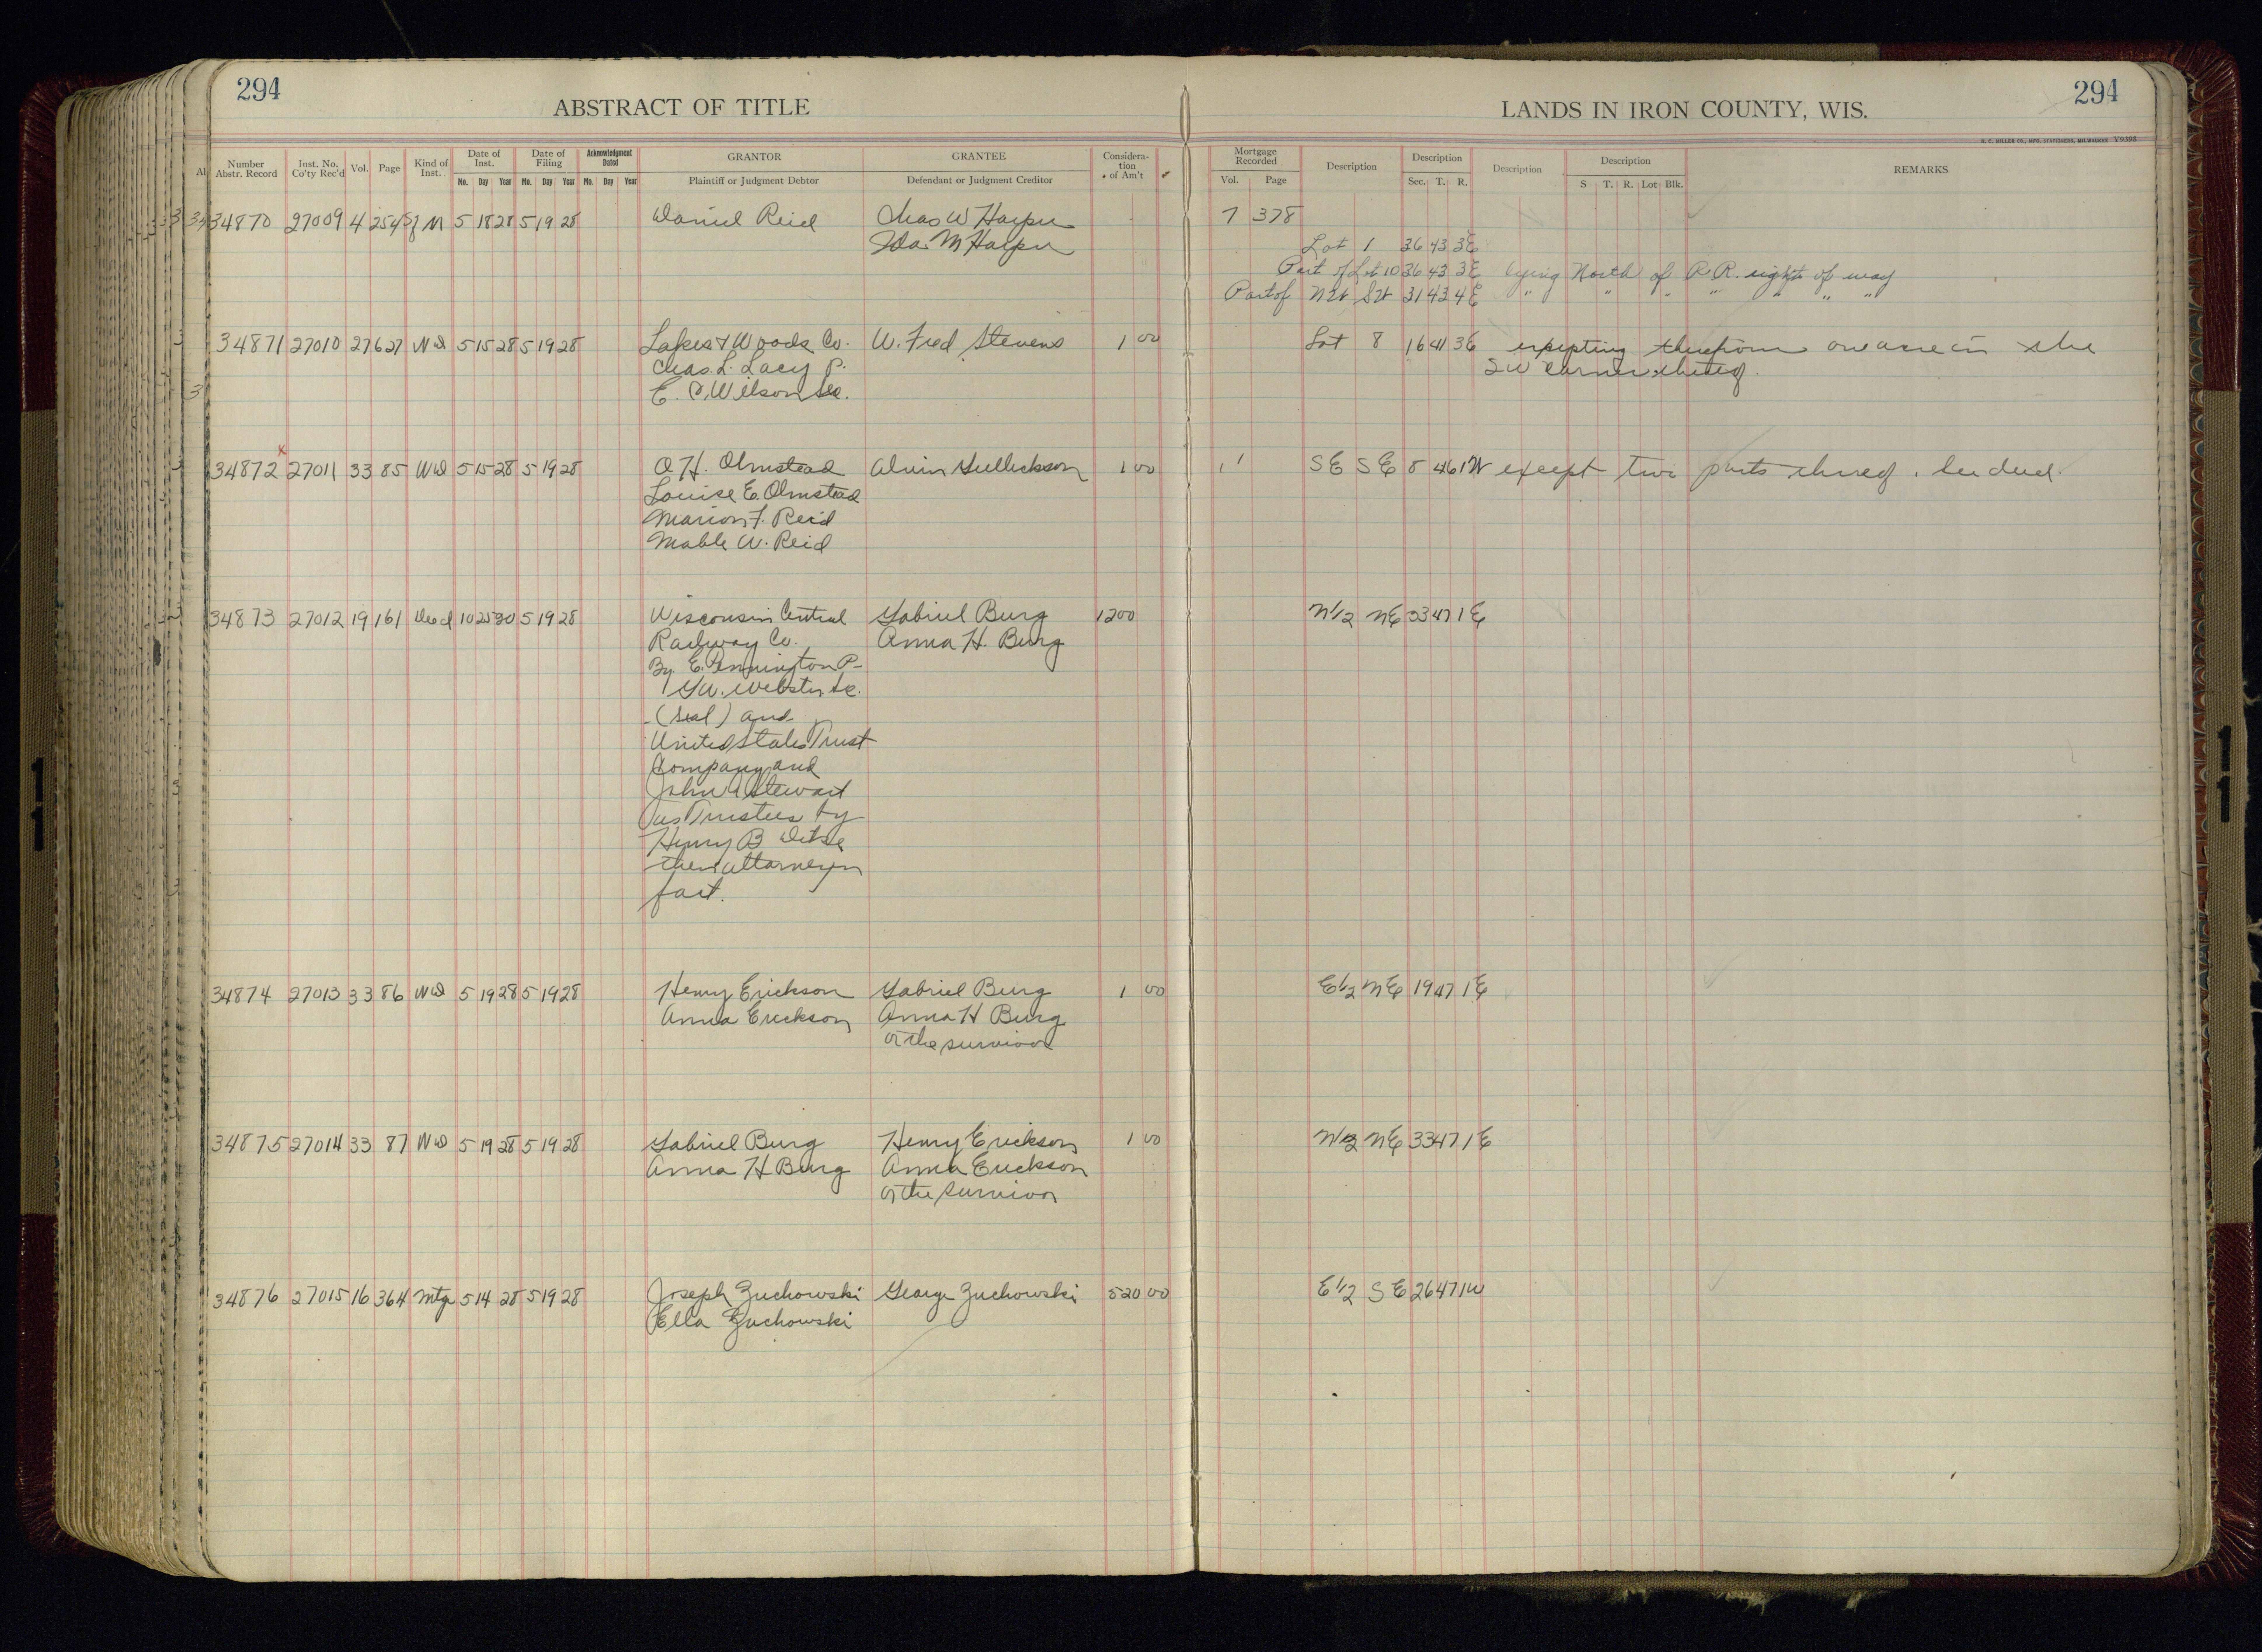 294
ABSTRACT OF TITLE
LANDS IN IRON COUNTY, WIS.
294
H. C. MILLER CO., MFG. STATIONERS, MILWAUKEE V9395
Number Abstr. Record | Inst. No. Co'ty Rec'd | Vol. | Page | Kind of Inst. | Date of Inst. | Date of Filing | Acknowledgment Dated | GRANTOR | GRANTEE | Consideration of Am't | Mortgage Recorded | Description | Description | Description | Description | REMARKS
Mo. Day Year Mo. Day Year Mo. Day Year Plaintiff or Judgment Debtor Defendant or Judgment Creditor Vol. Page Sec. T. R. S T. R. Lot Blk.
34870 27009 4 254 Sf M 5 18 28 5 19 28 Daniel Reid Chas W Harper 7 378
Ida M Harper Lot 1 36 43 3E
Part of Lot 10 36 43 3E lying North of R R. right of way
Part of NW SW 31 43 4E " " " " " " "
34871 27010 27 627 WD 5 15 28 5 19 28 Lakes & Woods Co. W. Fred Stevens 1 00 Lot 8 16 41 3E excepting therefrom one acre in the
Chas. L. Lacy P. SW corner thereof.
E. C. Wilson Sec.
34872 x 27011 33 85 WD 5 15 28 5 19 28 O H. Olmstead Alvin Gullickson 1 00 SE SE 8 46 1W except two parts thereof.
Louise E. Olmstead
Marion F. Reid
Mable W. Reid
34873 27012 19 161 Deed 10 25 20 5 19 28 Wisconsin Central Gabriel Burg 1200 N1/2 NE 33 47 1E
Railway Co. Anna H. Burg
By E. Pennington P-
G W. Webster Sec.
(Seal) and
United States Trust
Company and
John A Stewart
as Trustees by
Henry B
their attorney in
fact.
34874 27013 33 86 WD 5 19 28 5 19 28 Henry Erickson Gabriel Burg 1 00 E1/2 NE 19 47 1E
Anna Erickson Anna H Burg
or the survivor
34875 27014 33 87 WD 5 19 28 5 19 28 Gabriel Burg Henry Erickson 1 00 N1/2 NE 33 47 1E
Anna H Burg Anna Erickson
or the survivor
34876 27015 16 364 Mtg 5 14 28 5 19 28 Joseph Zuchowski George Zuchowski 520 00 E1/2 SE 26 47 1W
Ella Zuchowski